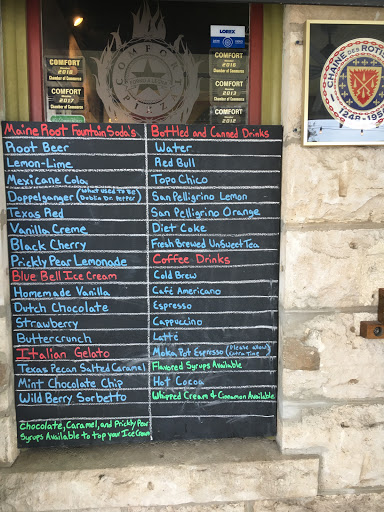 LOREX
COMFORT
2016
Chamber of Commerce
COMFORT
2017
Chamber of Commerce
COMFORT
PIZZA
COMFORT
2015
Chamber of Commerce
COMFORT
2018
Chamber of Commerce
CHAINE DES ROTISSEURS
1248-1950
Maine Root Fountain Soda's
Root Beer
Lemon-Lime
Mexicane Cola
Doppelganger (What used to be Dubbla Dr. Pepper)
Texas Red
Vanilla Creme
Black Cherry
Prickly Pear Lemonade
Blue Bell Ice Cream
Homemade Vanilla
Dutch Chocolate
Strawberry
Buttercrunch
Italian Gelato
Texas Pecan Salted Caramel
Mint Chocolate Chip
Wild Berry Sorbetto
Chocolate, Caramel, and Prickly Pear
Syrups Available to top your Ice Cream
Bottled and Canned Drinks
Water
Red Bull
Topo Chico
San Pelligrino Lemon
San Pelligrino Orange
Diet Coke
Fresh Brewed UnSweet Tea
Coffee Drinks
Cold Brew
Café Americano
Espresso
Cappuccino
Latté
Moka Pot Espresso (Please allow Extra Time)
Flavored Syrups Available
Hot Cocoa
Whipped Cream & Cinnamon Available